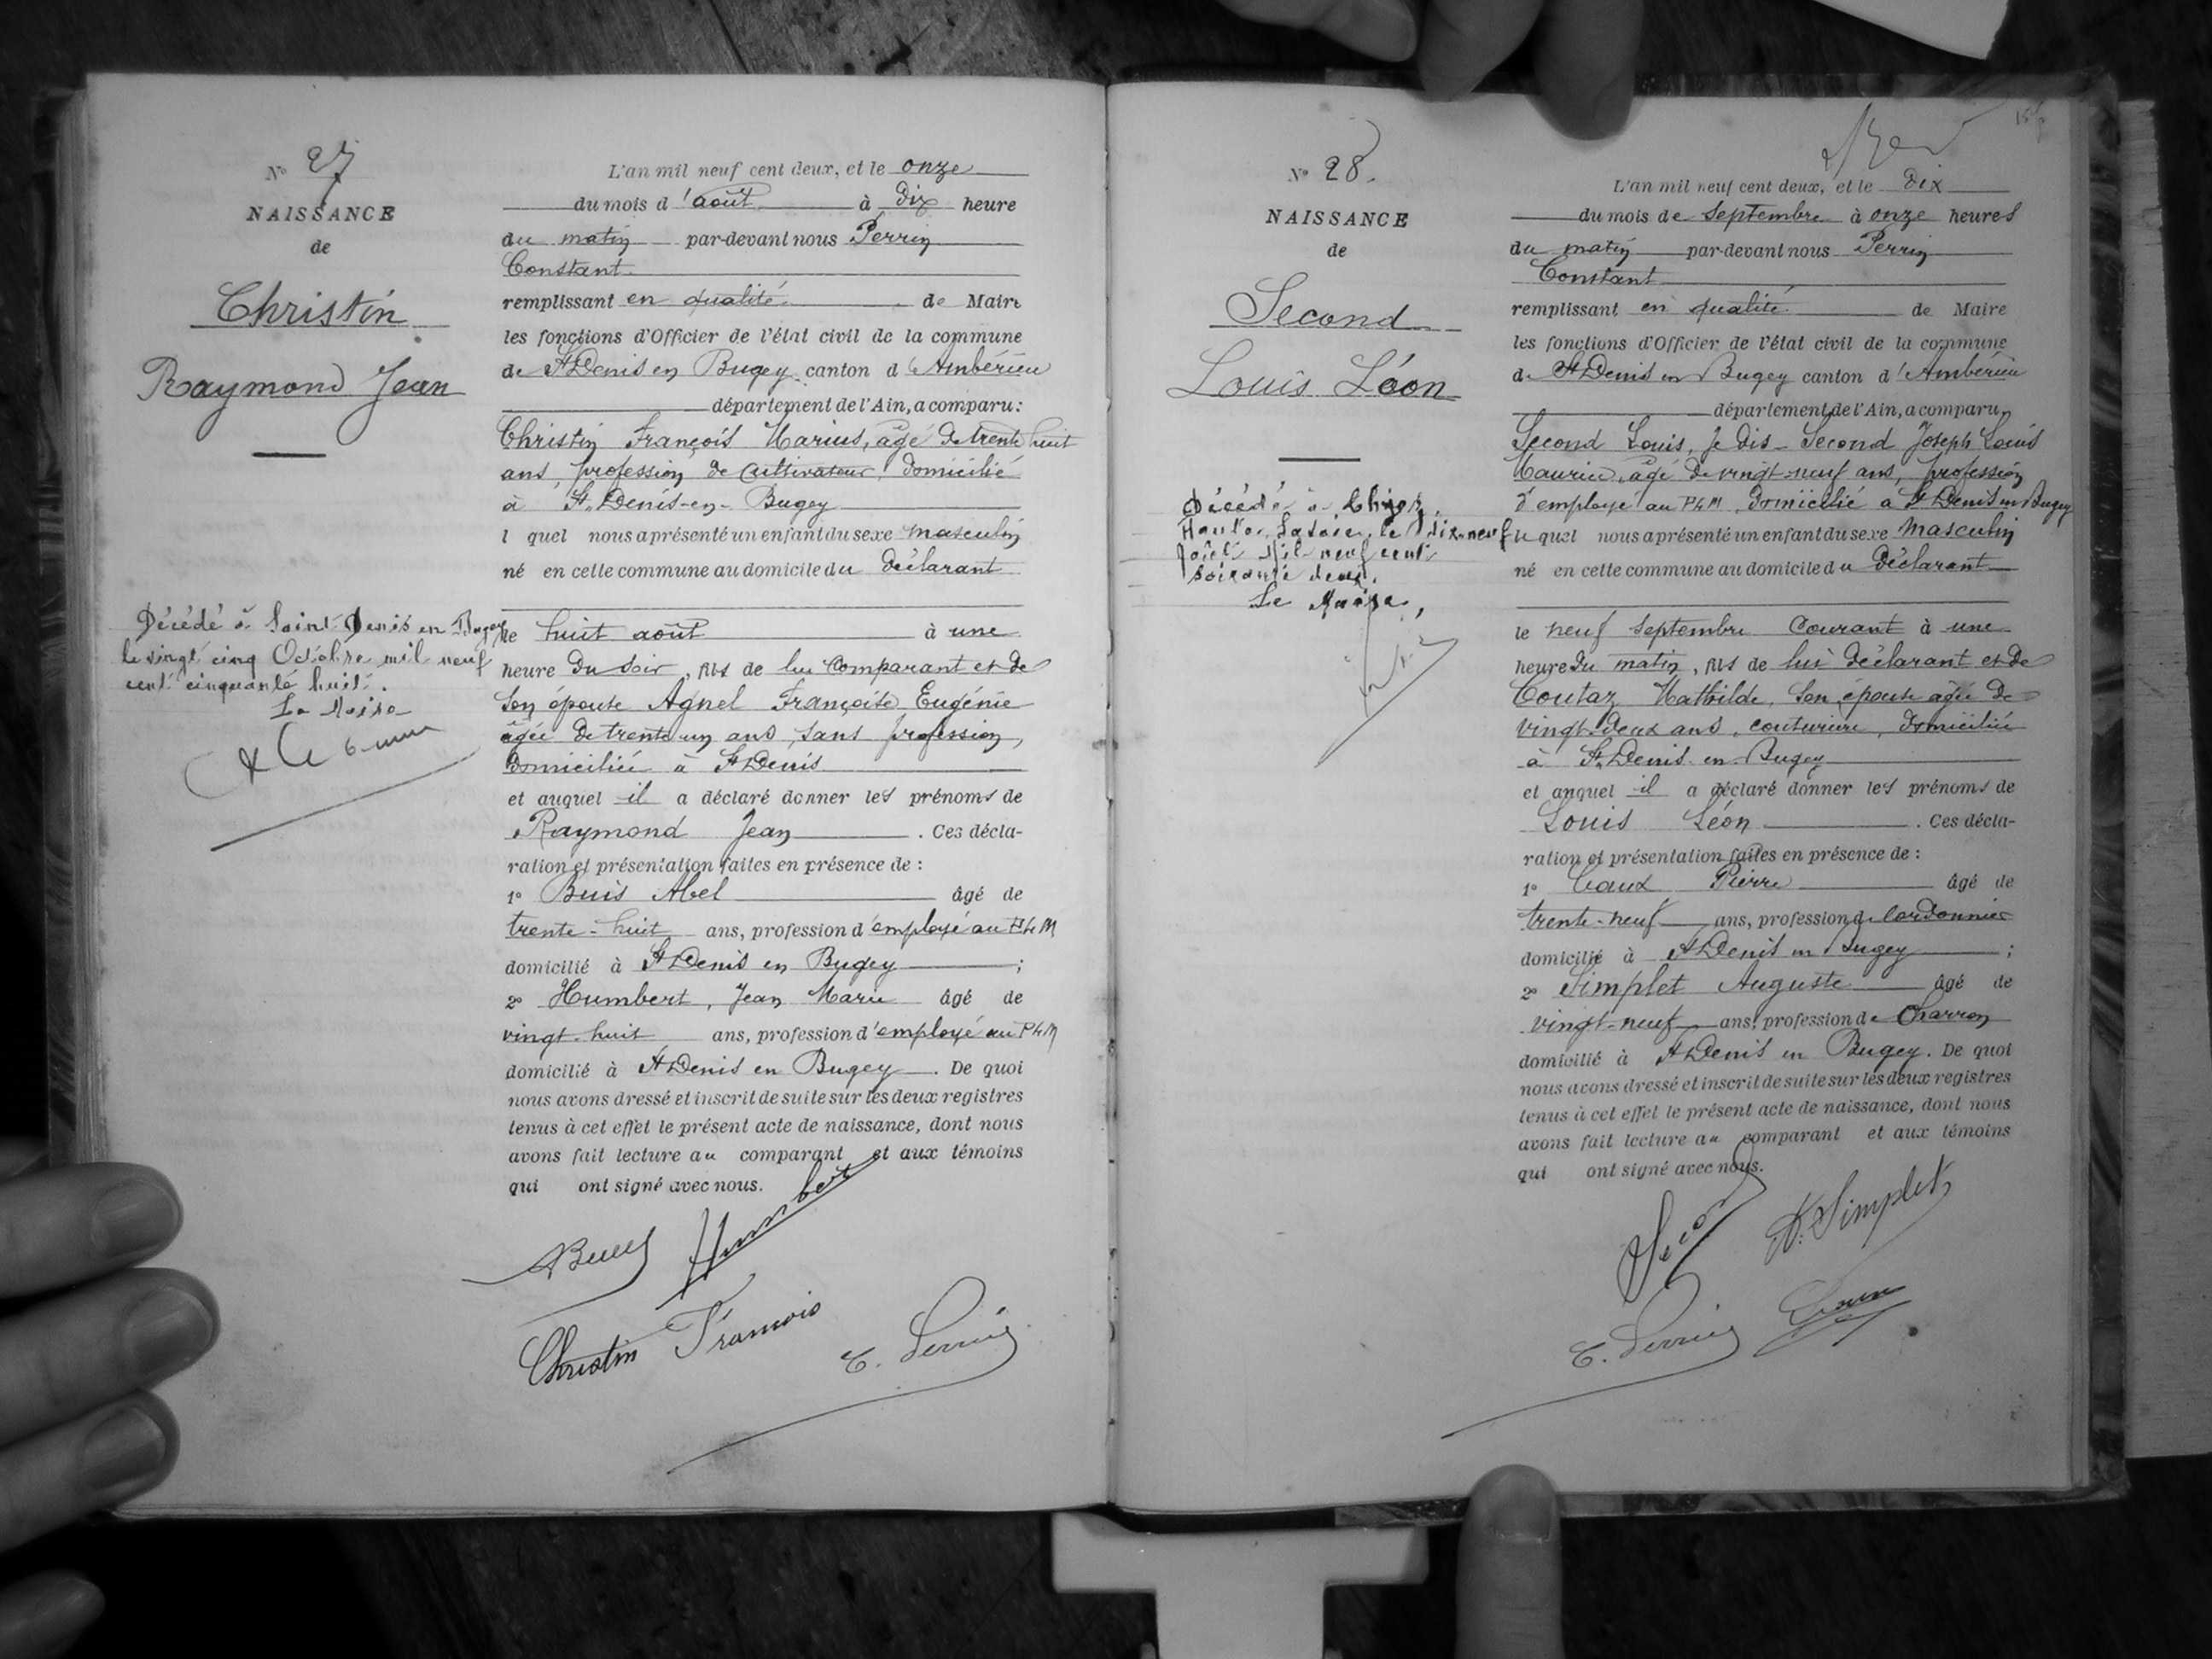 N° 27
NAISSANCE
de
Christin
Raymond Jean
Décédé à Saint Denis en Bugey
le vingt cinq Octobre mil neuf
cent cinquante huit.
Le Maire
L'an mil neuf cent deux, et le onze
du mois d'août à dix heure
du matin par-devant nous Perrin
Constant
remplissant en qualité de Maire
les fonctions d'Officier de l'état civil de la commune
de St Denis en Bugey canton d'Ambérieu
département de l'Ain, a comparu:
Christin François Marius, âgé de trente huit
ans, profession de cultivateur, domicilié
à St Denis-en-Bugey
l quel nous a présenté un enfant du sexe masculin
né en cette commune au domicile du déclarant
le huit août à une
heure du soir, fils de lui comparant et de
son épouse Agnel Françoise Eugénie
âgée de trente un ans, sans profession,
domiciliée à St Denis
et auquel il a déclaré donner les prénoms de
Raymond Jean. Ces décla-
ration et présentation faites en présence de :
1° Buis Abel âgé de
trente-huit ans, profession d'employé au PLM
domicilié à St Denis en Bugey ;
2° Humbert, Jean Marie âgé de
vingt-huit ans, profession d'employé au PLM
domicilié à St Denis en Bugey. De quoi
nous avons dressé et inscrit de suite sur les deux registres
tenus à cet effet le présent acte de naissance, dont nous
avons fait lecture au comparant et aux témoins
qui ont signé avec nous.
ABuis Humbert
Christin François C. Perrin
N° 28.
NAISSANCE
de
Second
Louis Léon
Décédé à
Haute Savoie, le dix-neuf
Août mil neuf cent
soixante deux.
Le Maire,
L'an mil neuf cent deux, et le dix
du mois de septembre à onze heures
du matin par-devant nous Perrin
Constant
remplissant en qualité de Maire
les fonctions d'Officier de l'état civil de la commune
de St Denis en Bugey canton d'Ambérieu
département de l'Ain, a comparu
Second Louis, je dis Second Joseph Louis
Maurice, âgé de vingt-neuf ans, profession
d'employé au PLM, domicilié à St Denis en Bugey
le quel nous a présenté un enfant du sexe masculin
né en cette commune au domicile du déclarant
le neuf septembre courant à une
heure du matin, fils de lui déclarant et de
Coutaz Mathilde, son épouse âgée de
vingt-deux ans, couturière, domiciliée
à St Denis en Bugey
et auquel il a déclaré donner les prénoms de
Louis Léon. Ces décla-
ration et présentation faites en présence de :
1° Pierre âgé de
trente-neuf ans, profession de cordonnier
domicilié à St Denis en Bugey ;
2° Simplet Auguste âgé de
vingt-neuf ans, profession de Charron
domicilié à St Denis en Bugey. De quoi
nous avons dressé et inscrit de suite sur les deux registres
tenus à cet effet le présent acte de naissance, dont nous
avons fait lecture au comparant et aux témoins
qui ont signé avec nous.
Second A. Simplet
C. Perrin